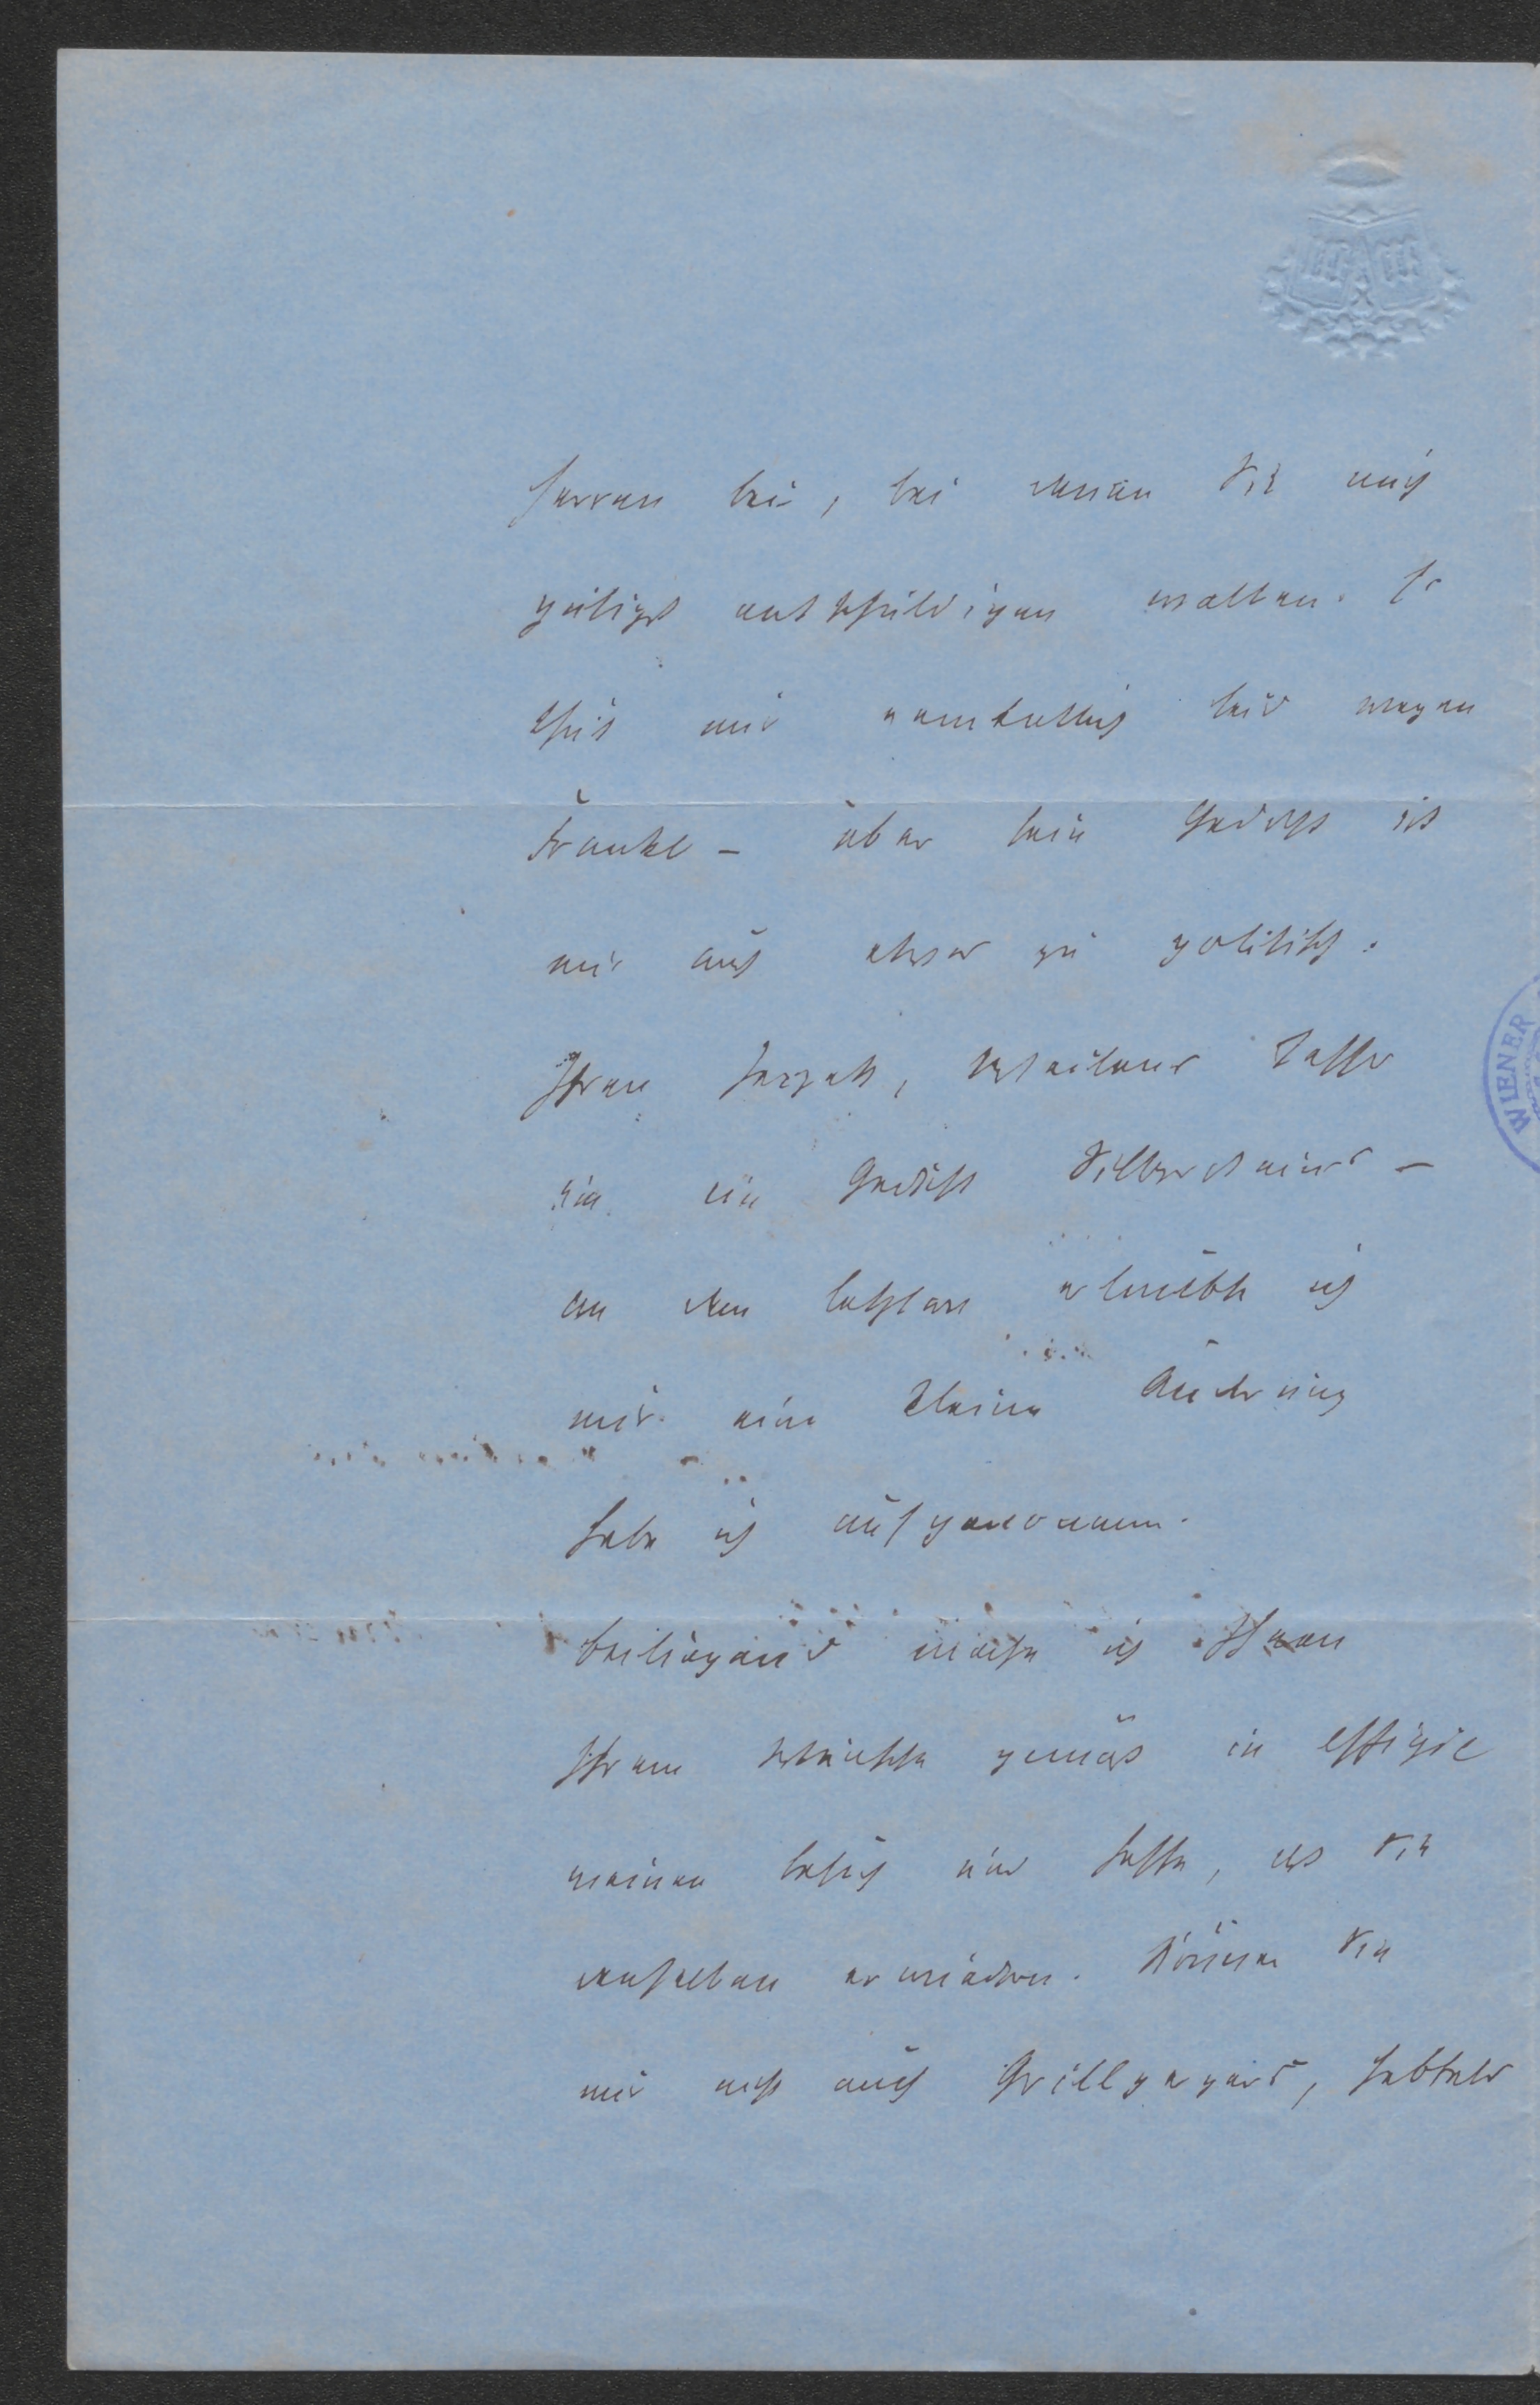 Herren bei, bei denen Sie mich
gütigst entschuldigen wollen. Es
thut mir namentlich leid wegen
Frankl – aber sein Gedicht ist
mir auch etwas zu politisch.
Ihren Sonett, Weilens Tasso
und ein Gedicht Silbersteins –
an dem letztern erlaubte ich
mir eine kleine Änderung
habe ich aufgenommen.
Beiliegend mache ich Ihnen
Ihrem Wunsche gemäs in effigie
meinen Besuch und hoffe, das Sie
denselben erwiedern. Können Sie
mir nicht auch Grillparzers, Hebbels
WIENER